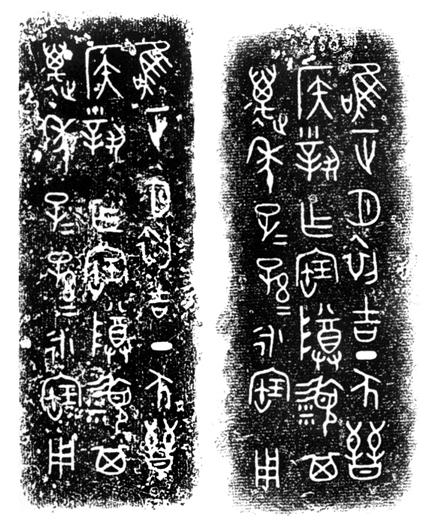 唯正月初吉丁亥晉
侯乍寶尊其
萬年子=孫=永寶用
唯正月初吉丁亥晉
侯乍寶尊其
萬年子=孫=永寶用